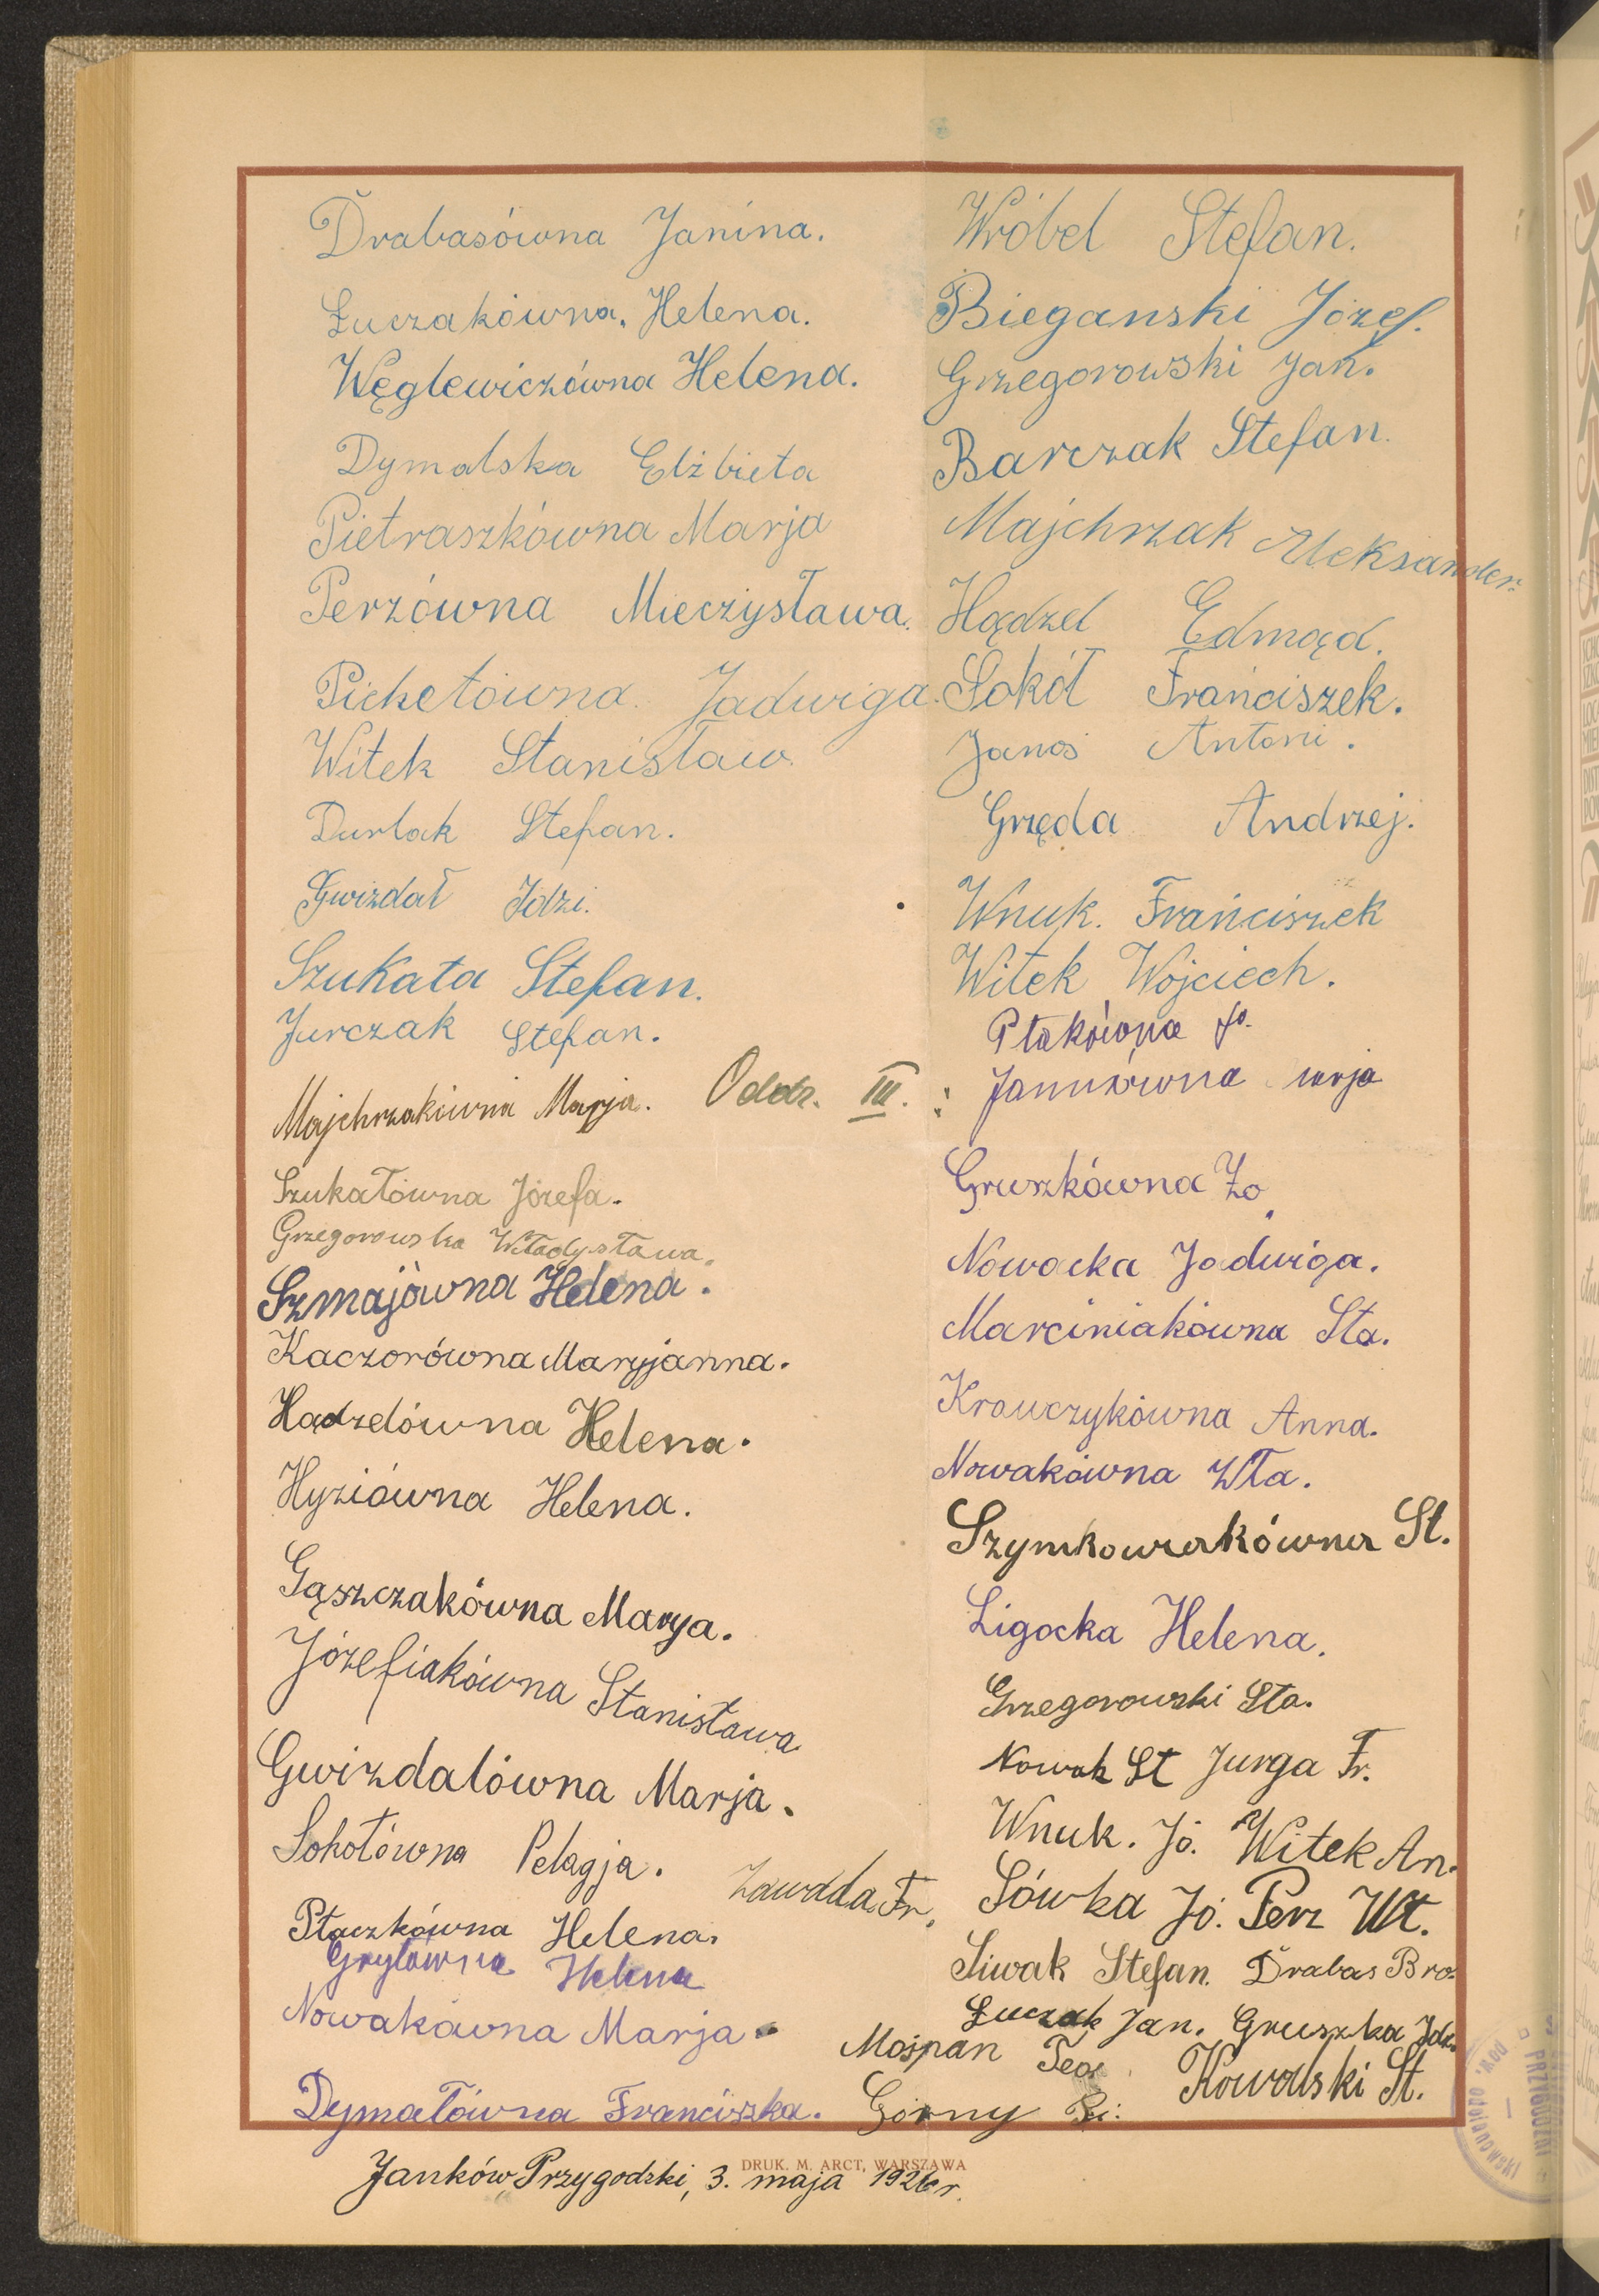 Drabasówna Janina.
Łuczakówna, Helena.
Węglewiczówna Helena.
Dymalska Elżbieta
Pietraszkówna Marja
Perzówna Mieczysława.
Pichetówna. Jadwiga.
Witek Stanisław.
Durlak Stefan.
Gwizdał Idzi.
Szukała Stefan.
Jurczak Stefan.
Majchrzakówna Marja. Oddz. III. :
Szukałówna Józefa.
Grzegorowska Władysława.
Szmajówna Helena.
Kaczorówna Maryjanna.
Hadzelówna Helena.
Hyziówna Helena.
Gąszczakówna Marya.
Józefiakówna Stanisława
Gwizdalówna Marja.
Sokołówna Pelagja.
Ptaczkówna Helena.
Grylówna Helena
Nowakówna Marja
Dymałówna Franciszka.
Wróbel Stefan.
Bieganski Józef.
Grzegorowski Jan.
Barczak Stefan.
Majchrzak Aleksander.
Hądzel Edmąd.
Sokół Franciszek.
Janoś Antoni.
Gręda Andrzej.
Wnuk. Franciszek
Witek Wojciech.
Ptakówna Jo.
Janusówna Marja
Gruszkówna Zo.
Nowacka Jadwiga.
Marciniakówna Sta.
Krawczykówna Anna.
Nowakówna Wła.
Szymkowiakówna St.
Ligocka Helena.
Grzegorowski Sta.
Nowak St Jurga Fr.
Wnuk. Jó. Witek An.
Zawada Fr. Sówka Jó. Perz Wł.
Siwak Stefan. Drabas Bro.
Łuczak Jan. Gruszka Idz.
Mośpan Teo. Kowalski St.
Górny
Janków Przygodzki, 3. maja 1926 r.
DRUK. M. ARCT, WARSZAWA